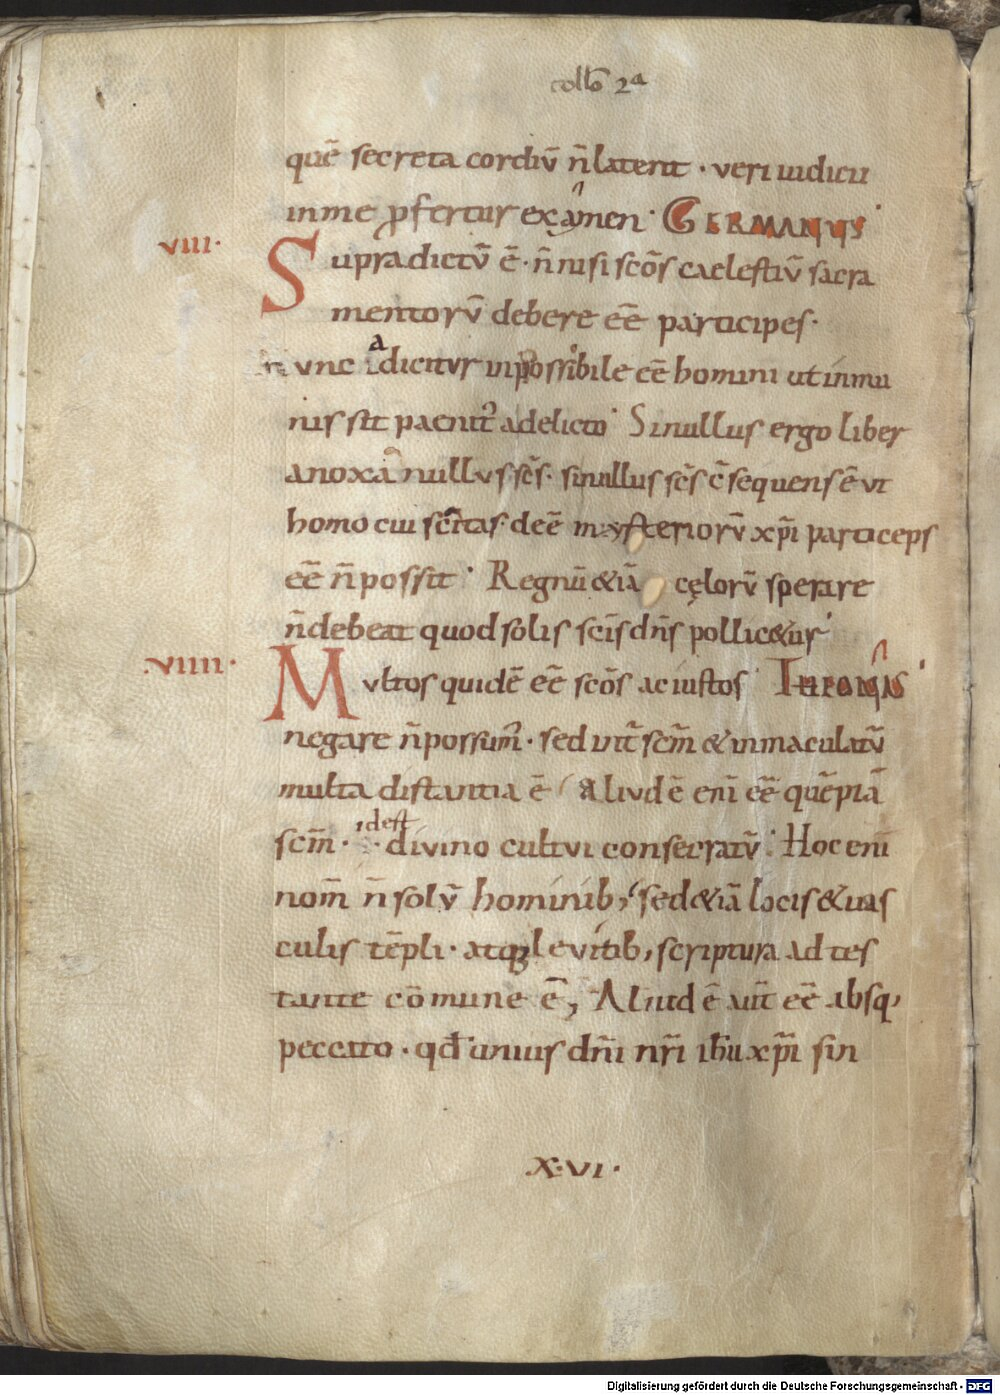 collo 2a
quē secreta cordiū n̄ latent · veri iudicii
in me p̱fertur examen · GERMANUS
VIII· Supradictū ē · n̄ nisi scōs caelestiū sacra
mentorū debere eē participes·
nunc a dicitur inpossibile eē homini ut inmu
nis sit paenit' a delicto · Si nullus ergo liber
a noxa nullus scs̄· si nullus scs̄ c̄sequens ē ut
homo cui scītas deē mysteriorū xp̄i particeps
eē n̄ possit · Regnū &iā cęlorū sperare
n̄ debeat quod solis scīs dn̄s pollic&ur
VIIII· Multos quidē eē scōs ac iustos
negare n̄ possum' · sed int̄ scm̄ & inmaculatū
multa distantia ē Aliud ē eni eē quēpiā
scm̄ · idest divino cultui consecratū : Hoc eni
nom̄ n̄ solū hominib; sed &iā locis & uas
culis tēpli · atq; levitib; scriptura ad tes
tante cōmune ē; Aliud ē aut̄ eē absq;
peccato · qd̄ unius dn̄i nr̄i ihu xp̄i sin
X·VI·
Digitalisierung gefördert durch die Deutsche Forschungsgemeinschaft - DFG